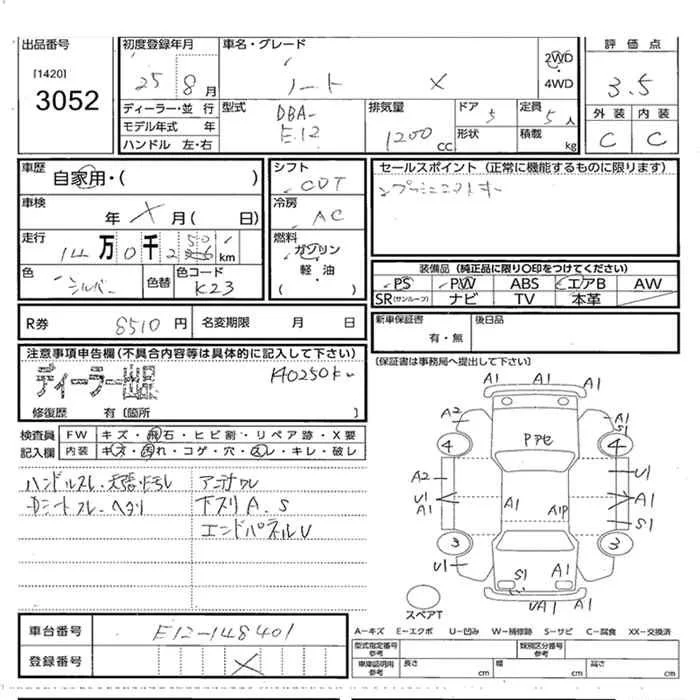 出品番号
[1420]
3052
初度登録年月
25 8月
車名・グレード
ノート X
2WD
・
4WD
評価点
3.5
ディーラー・並行
モデル年式 年
ハンドル 左・右
型式
DBA-
E12
排気量
1200 cc
ドア 5
形状
定員 5人
積載 kg
外装 内装
C C
車歴
自家用・( )
車検
年 X 月( 日)
走行
14万0千250km
色
シルバー
色替
色コード
K23
シフト
CVT
冷房
AC
燃料
ガソリン
・
軽・油
セールスポイント (正常に機能するものに限ります)
装備品 (純正品に限り○印をつけてください)
PS PW ABS エアB AW
SR(サンルーフ) ナビ TV 本革
R券 8510円 名変期限 月 日
新車保証書
有・無
後日品
(保証書は事務局へ提出して下さい)
注意事項申告欄(不具合内容等は具体的に記入して下さい)
140250km
修復歴 有〔箇所 〕
検査員
記入欄
FW キズ・飛石・ヒビ割・リペア跡・X要
内装 キズ・汚れ・コゲ・穴・スレ・キレ・破レ
ハンドルスレ、天張ヨゴレ
アンダーワレ
下スリA、S
エンドパネルU
A1 A1
A1
A2 A1 S1
4 4
Pアセ
A2 U1
U1 A1
A1 A1 A1P S1
3 3
U1 A1
S1 A1
UA1 U1
スペアT
車台番号 E12-148401
登録番号 X
A-キズ E-エクボ U-凹み W-補修跡 S-サビ C-腐食 XX-交換済
型式指定番号
参考
類別区分番号
参考
車庫証明用
参考
長さ cm 幅 cm 高さ cm